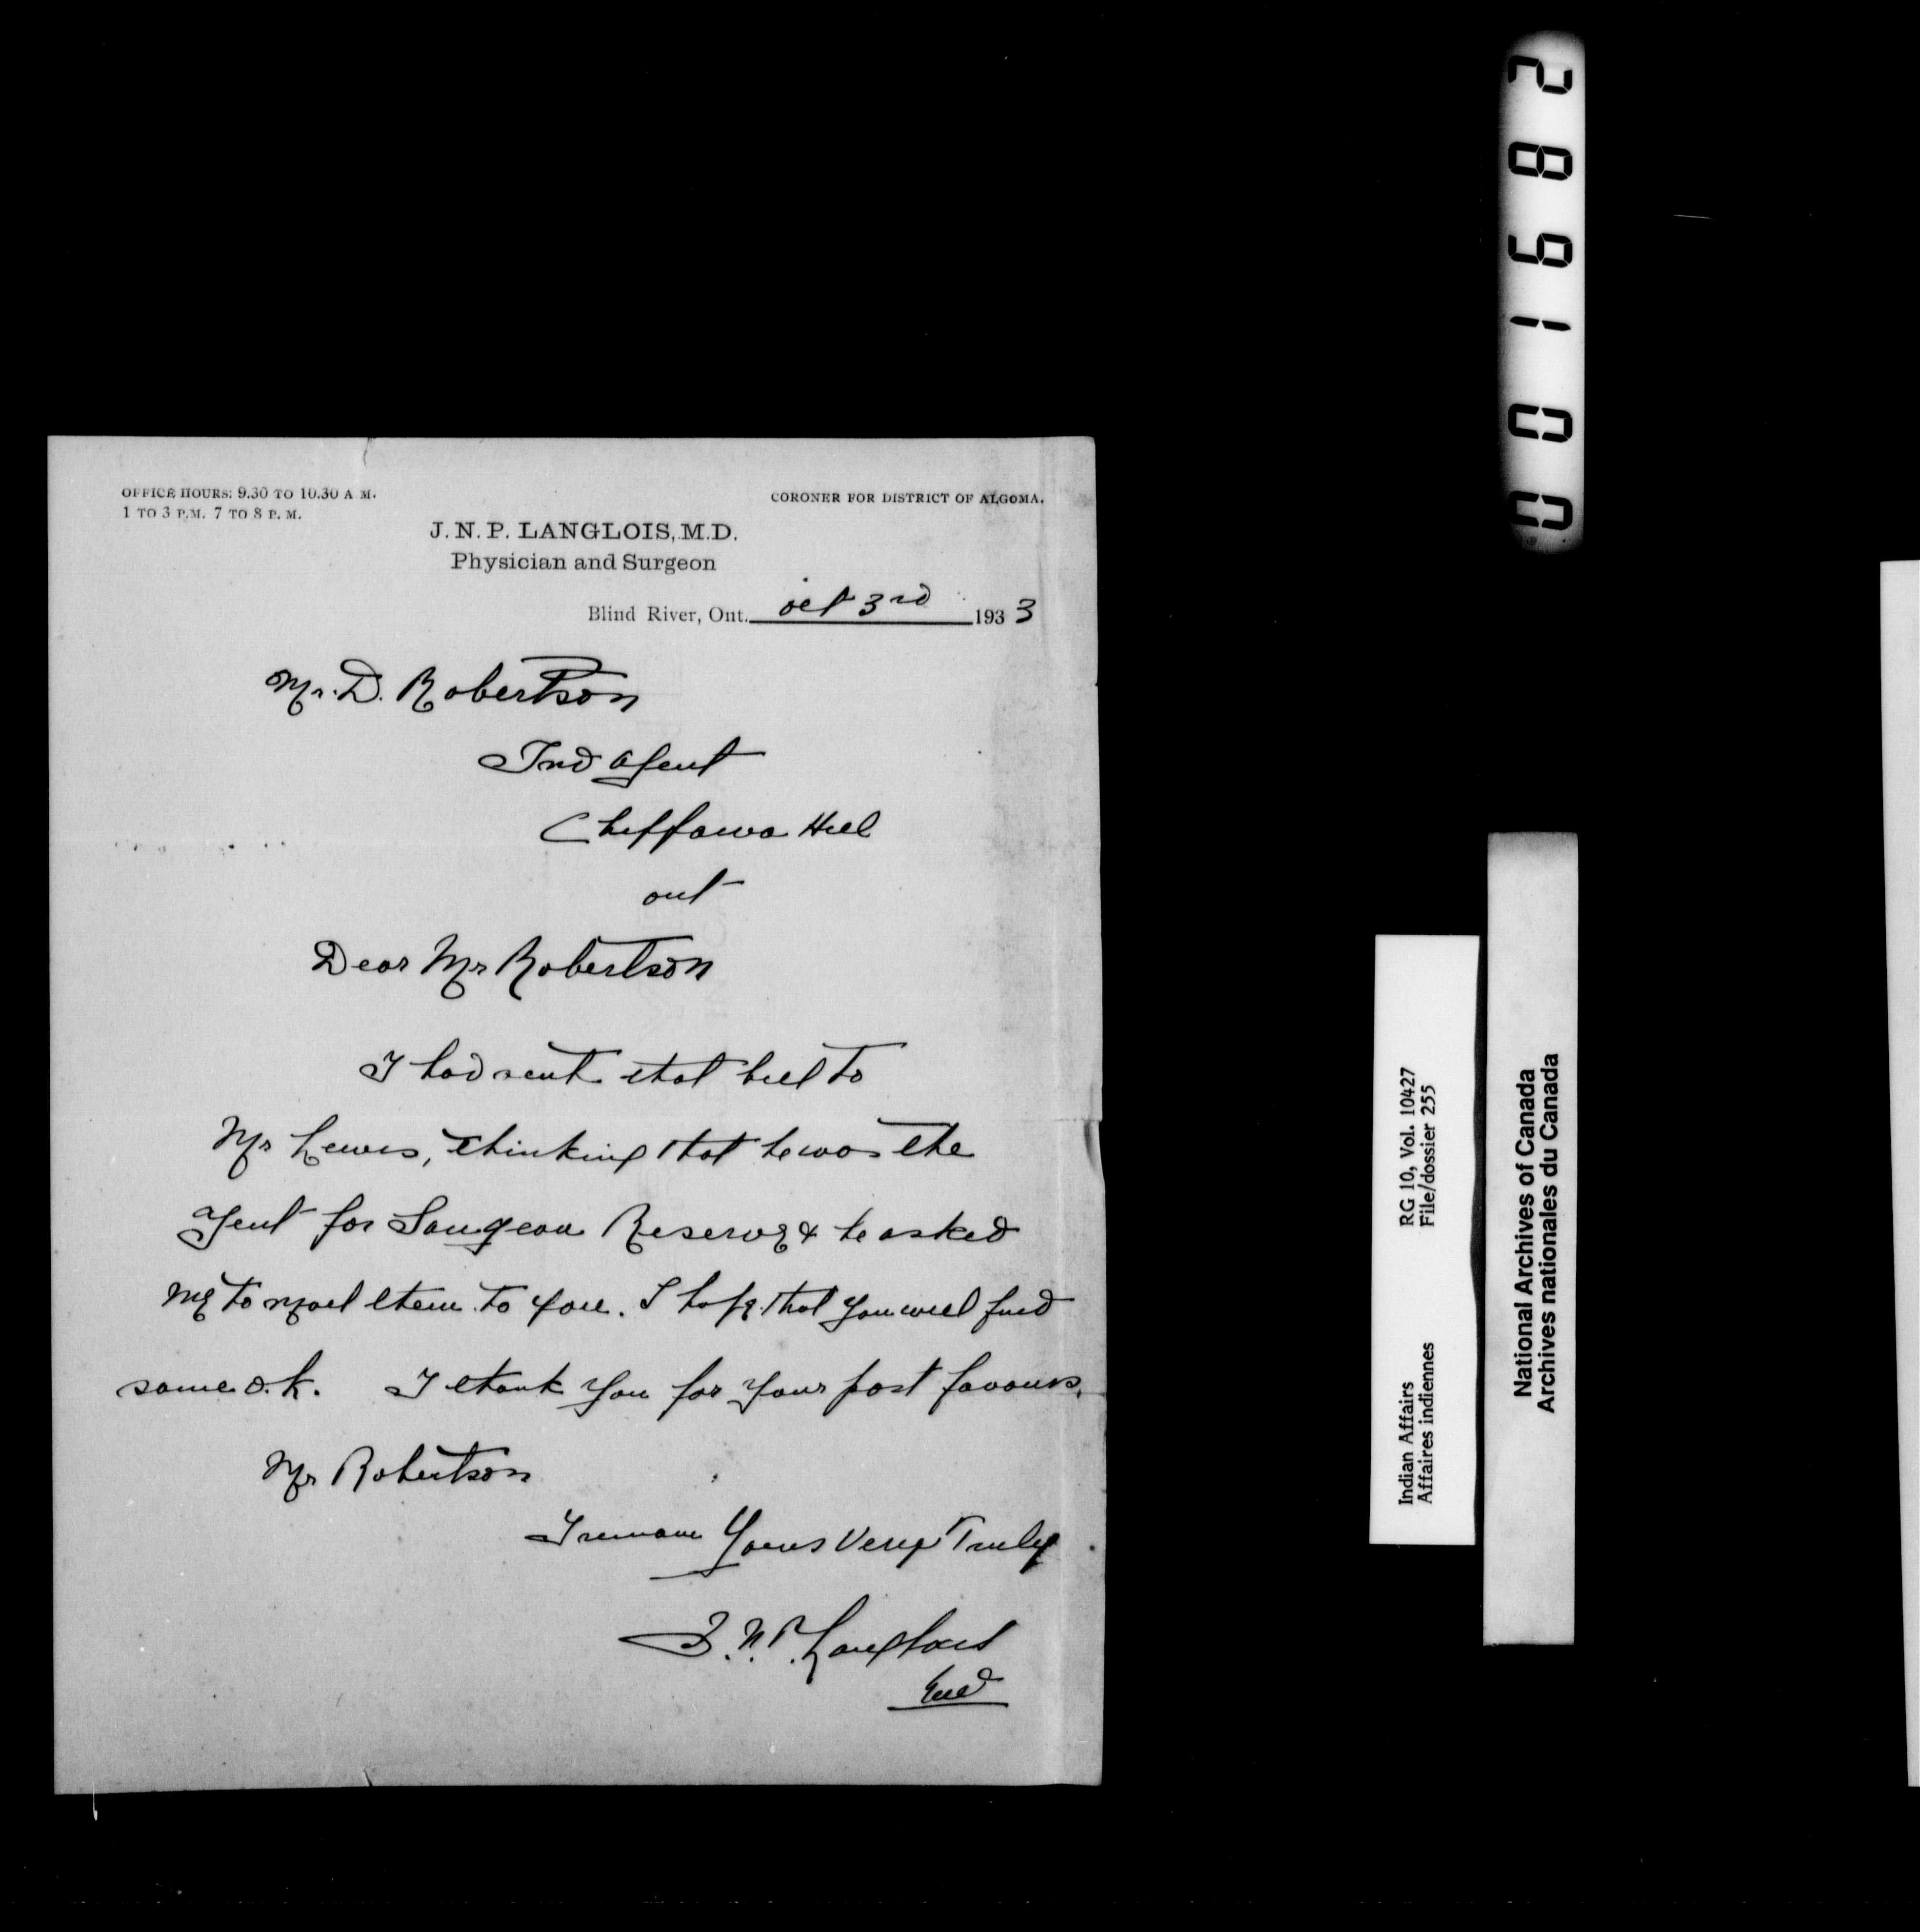 OFFICE HOURS: 9.30 TO 10.30 A M.
1 TO 3 P.M. 7 TO 8 P. M.
CORONER FOR DISTRICT OF ALGOMA.
J. N. P. LANGLOIS, M.D.
Physician and Surgeon
Blind River, Ont. Oct 3rd 1933
Mr. D. Robertson
Ind Agent
Cheppawa Hill
Ont
Dear Mr Robertson
I had sent that bill to
Mr Lewis, thinking that he was the
Agent for Saugeen Reserve & he asked
me to mail them to you. I hope that you will find
same o.k. I thank you for your past favours,
Mr Robertson
I remain Yours Very Truly
J. N. P. Langlois
001682
Indian Affairs RG 10, Vol. 10427
Affaires indiennes File/dossier 255
National Archives of Canada
Archives nationales du Canada